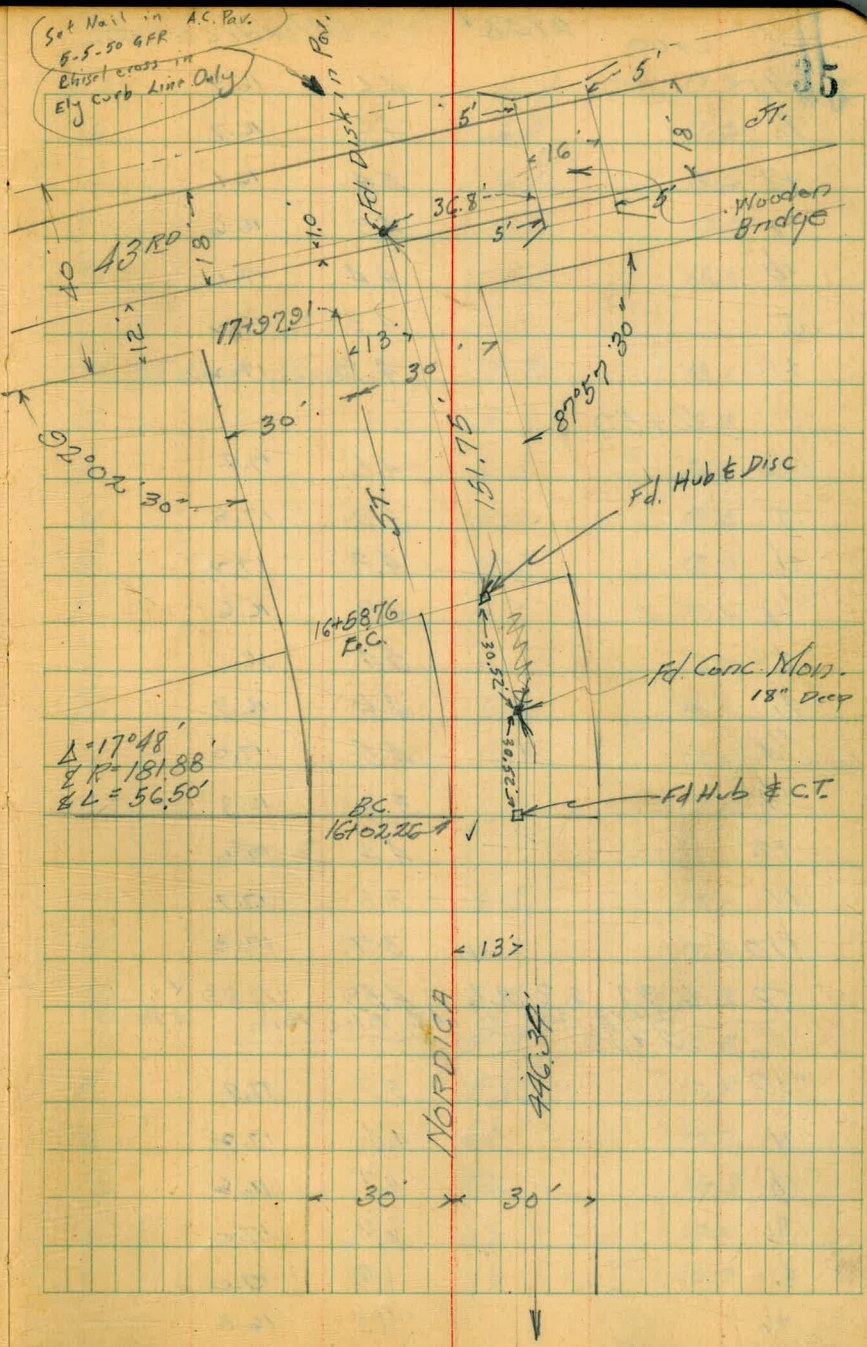 Set Nail in A.C. Pav.
5-5-50 GFR
Chisel cross in
Ely Curb Line Only
35
Fd. Disk in Pav.
5'
5'
18'
ST.
16'
36.8'
5'
5'
Wooden
Bridge
40'
43RD
18'
1.0'
12'
17+97.91
13'
30'
30'
87°57'30"
92°02'30"
151.75'
ST.
Fd. Hub & Disc
16+58.76
E.C.
30.52'
Fd Conc. Mon.
18" Deep
30.52'
Δ=17°48'
R=181.88'
L=56.50'
B.C.
16+02.26
Fd Hub & C.T.
13'
NORDICA
446.34'
30'
30'